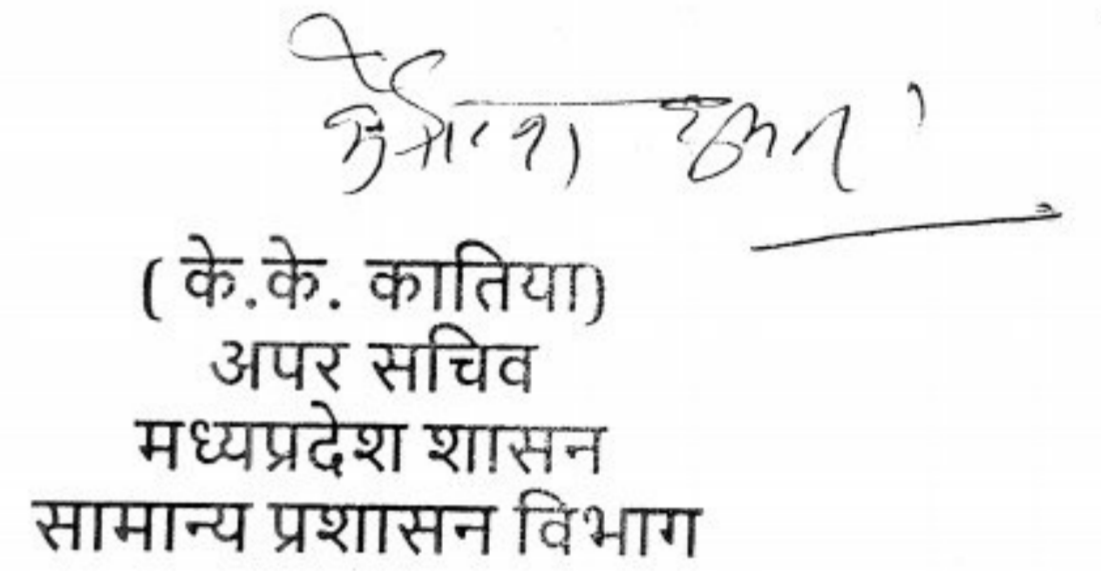 ( के.के. कातिया)
अपर सचिव
मध्यप्रदेश शासन
सामान्य प्रशासन विभाग